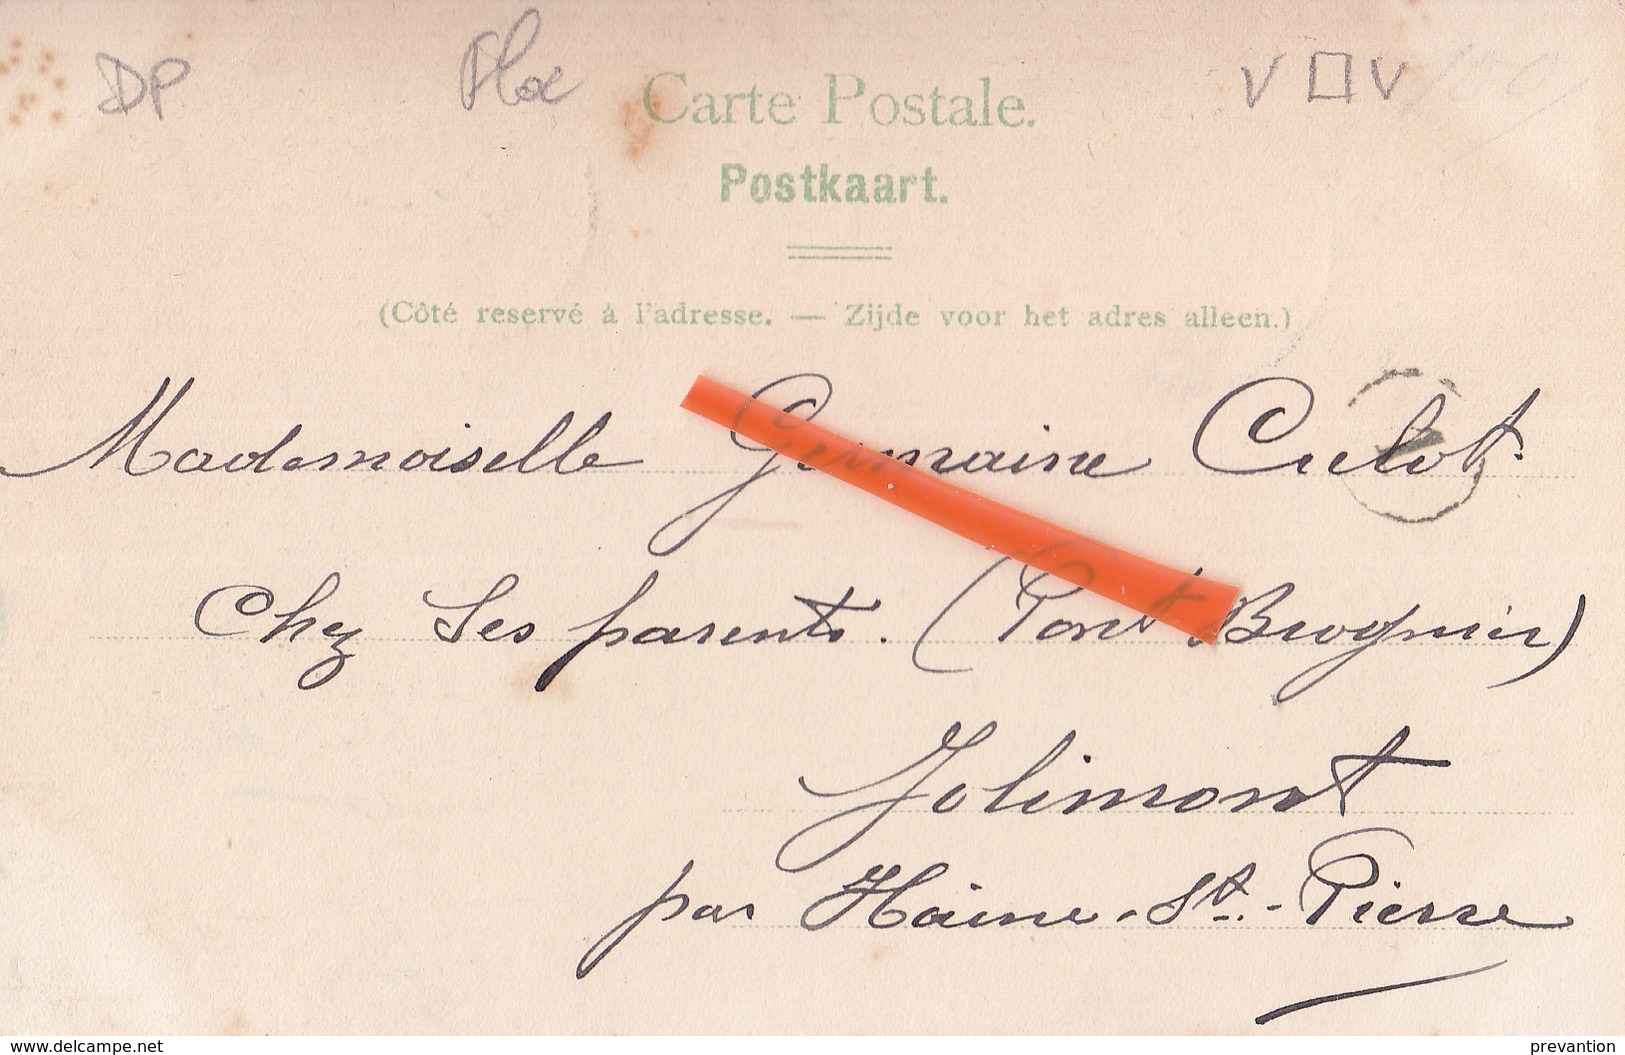 DP
V □ V
Carte Postale.
Postkaart.
(Côté reservé à l'adresse. — Zijde voor het adres alleen.)
Mademoiselle Germaine Culot
Chez Ses parents. (Pont Brognier)
Jolimont
par Haine-St.-Pierre
www.delcampe.net
prevantion